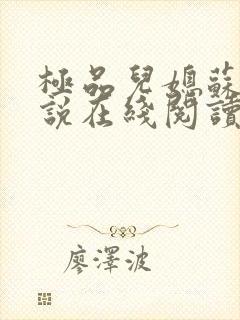 極品兒媳蘇
說在綫閱讀
廖澤波